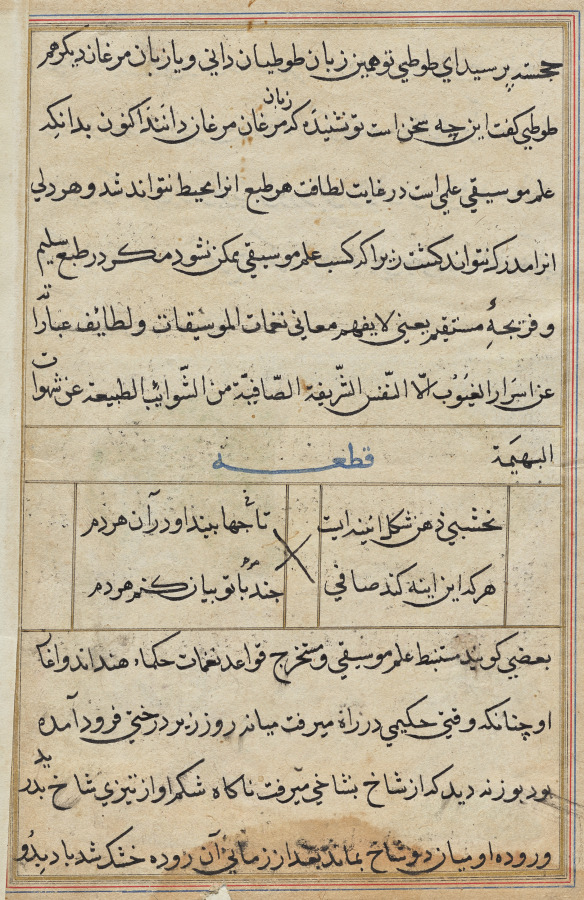 خجسته پرسید ای طوطی تو همین زبان طوطیان دانی و یا زبان مرغان دیگر هم
طوطی گفت این چه سخن است تو نشنیده که مرغان زبان مرغان دانند اکنون بدانکه
علم موسیقی علمی است در غایت لطافت هر طبع انرا محیط نتواند شد و هر دلی
انرا مدرک نتواند گشت زیرا که کسب علم موسیقی ممکن نشود مکر در طبع سلیم
و قریحهٔ مستقیم یعنی لا یفهم معانی نغمات الموسیقات و لطایف عباراته
عن اسرار الغیوب الّا النّفس الشّریفة الصّافیّة من الشّوائب الطبیعة عن شهوات
البهیمَة
قطعه
نخشبی ذهن شکل ائینه ایت
تا جها بیند او در آن هر دم
هر که این اینه کند صافی
چند با تو بیان کنم هر دم
بعضی کویند مستنبط علم موسیقی و مستخرج قواعد نغمات حکماء هند اند و اغاز
او چنانکه وقتی حکیمی در راه میرفت میانه روز زیر درختی فرود آمده
بود بوزنه دید که از شاخ بشاخی میرفت ناکاه شکم او از تیزی شاخ بدرید
و روده او میان دو شاخ بماند بعد از زمانی آن روده خشک شد باد بدو